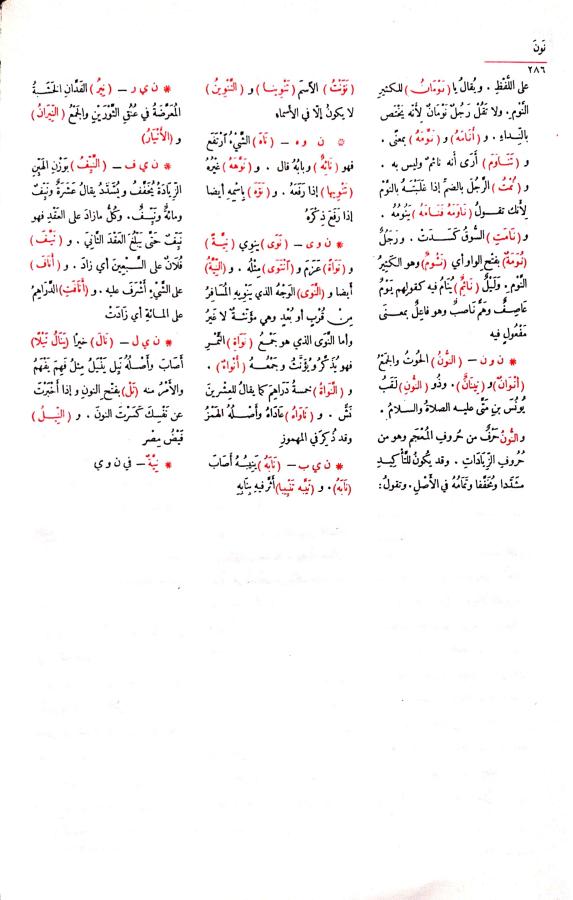 نَونَ
٢٨٦
على اللَّفْظِ . ويُقالُ يا (نَوْمَانُ) للكَثيرِ
النَّوْمِ. ولا تَقُلْ رَجُلٌ نَوْمَانٌ لأنَّه يَخْتَصّ
بالنِّداءِ. و (أَنَامَهُ) و (نَوَّمَهُ) بمعنًى .
و (تَنَاوَمَ) أَرَى أنه نائمٌ وليس به .
و (نُمْتُ) الرَّجُلَ بالضمِّ إذا غَلَبْتَهُ بالنَّوْمِ
لِأنك تقــولُ (نَاوَمَهُ فَنَامَهُ) يَنُومُهُ .
و (نَامَتِ) السُّوقُ كَسَدَتْ . ورَجُلٌ
(نُوَمَةٌ) بفتح الواو أي (نَئُومٌ) وهو الكَثيرُ
النَّوْمِ. ولَيْلٌ (نَائِمٌ) يُنَامُ فيه كقولهم يَوْمٌ
عاصِفٌ وهَمٌّ ناصِبٌ وهو فاعِلٌ بمعــنى
مَفْعُولٍ فيه
* ن ون – (النُّونُ) الحُوتُ والجَمْعُ
(أَنْوَانٌ) و (نِينَانٌ) . وذُو (النُّونِ) لَقَبُ
يُونُسَ بْنِ مَتَّى عليــه الصلاةُ والسلامُ .
و (النُّونُ) حَرْفٌ من حُروفِ المُعْجَمِ وهو من
حُروفِ الزِّيَادَاتِ . وقد يكونُ للتَّأكِيــدِ
مشَدَّدا ومُخَفَّفا وتَمَامُهُ في الأصْلِ. وتقولُ:
(نَوَّنْتُ) الآسمَ (تَنْوِينــا) و (التَّنْوِينُ)
لا يكونُ إلّا في الأسماء
* ن وه – (نَاهَ) الشَّيْءُ آرْتَفَعَ
فهو (نَائِهٌ) وبابُهُ قال . و (نَوَّهَهُ) غَيْرُهُ
(تَنْوِيها) إذا رَفَعَهُ . و (نَوَّهَ) بآسْمِهِ أيضا
إذا رَفَعَ ذِكْرَهُ
* ن وى – (نَوَى) يَنوِي (نِيَّــةً)
و (نَوَاةً) عَزَمَ و (آنْتَوَى) مِثْلُهُ . و (النِّيَّةُ)
أيضا و (النَّوَى) الوَجْهُ الذي يَنْوِيهِ المُسَافِرُ
مِنْ قُرْبٍ أو بُعْدٍ وهي مؤنَّثةٌ لا غَيرُ
وأما النَّوَى الذي هو جَمْعُ (نَوَاةِ) التَّمْــرِ
فهو يُذَكَّرُ ويُؤَنَّثُ وجَمْعُهُ (أَنْوَاءٌ) .
و (النَّوَاةُ) خمسةُ دَراهِمَ كما يقالُ للعِشْرينَ
نَشٌّ . و (نَاوَاهُ) عَادَاهُ وأَصْلُهُ الهَمْزُ
وقد ذُكِرَ في المهموز
* ن ي ب – (نَابَهُ) يَنِيبُهُ أَصَابَ
(نَابَهُ). و (نَيَّبَه تَنْيِيبا) أَثَّرَ فيه بِنَابِه
* ن ي ر – (نِيرُ) الفَدَّانِ الخَشَبةُ
المُعَرَّضةُ في عُنُقِ الثَّوْرَيْنِ والجَمْعُ (النِّيرَانُ)
و (الأَنْيَارُ)
* ن ي ف – (النَّيِّفُ) بوَزْنِ الهَيِّنِ
الزِّيَادَةُ يُخَفَّفُ ويُشَدَّدُ يقالُ عَشَرَةٌ ونَيِّفٌ
ومائةٌ ونَيِّــفٌ. وكُلُّ مازادَ على العَقْدِ فهو
نَيِّفٌ حَتَّى يَبلُغَ العَقْدَ الثَّانِيَ . و (نَيَّفَ)
فُلانٌ على السَّبْعِينَ أي زادَ . و (أَنَافَ)
على الشَّيْءِ أَشْرَفَ عليه . و (أَنَافَتِ) الدَّراهِمُ
على المــائةِ أي زادَتْ
* ن ي ل – (نَالَ) خَيرًا (يَنَالُ نَيْلًا)
أَصابَ وأَصْلُهُ نَيِلَ يَنْيَلُ مِثلُ فَهِمَ يَفْهَمُ
والأَمْرُ منه (نَلْ) بفتح النون وإذا أَخْبَرْتَ
عن نَفْسِكَ كَسَرْتَ النونَ . و (النِّيــلُ)
فَيْضُ مِصْر
* نِيَّةٌ – في ن و ي